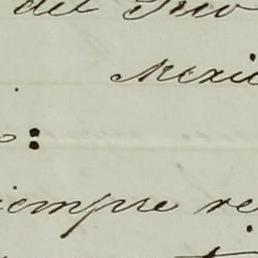 del
Mexic
o:
iempre re